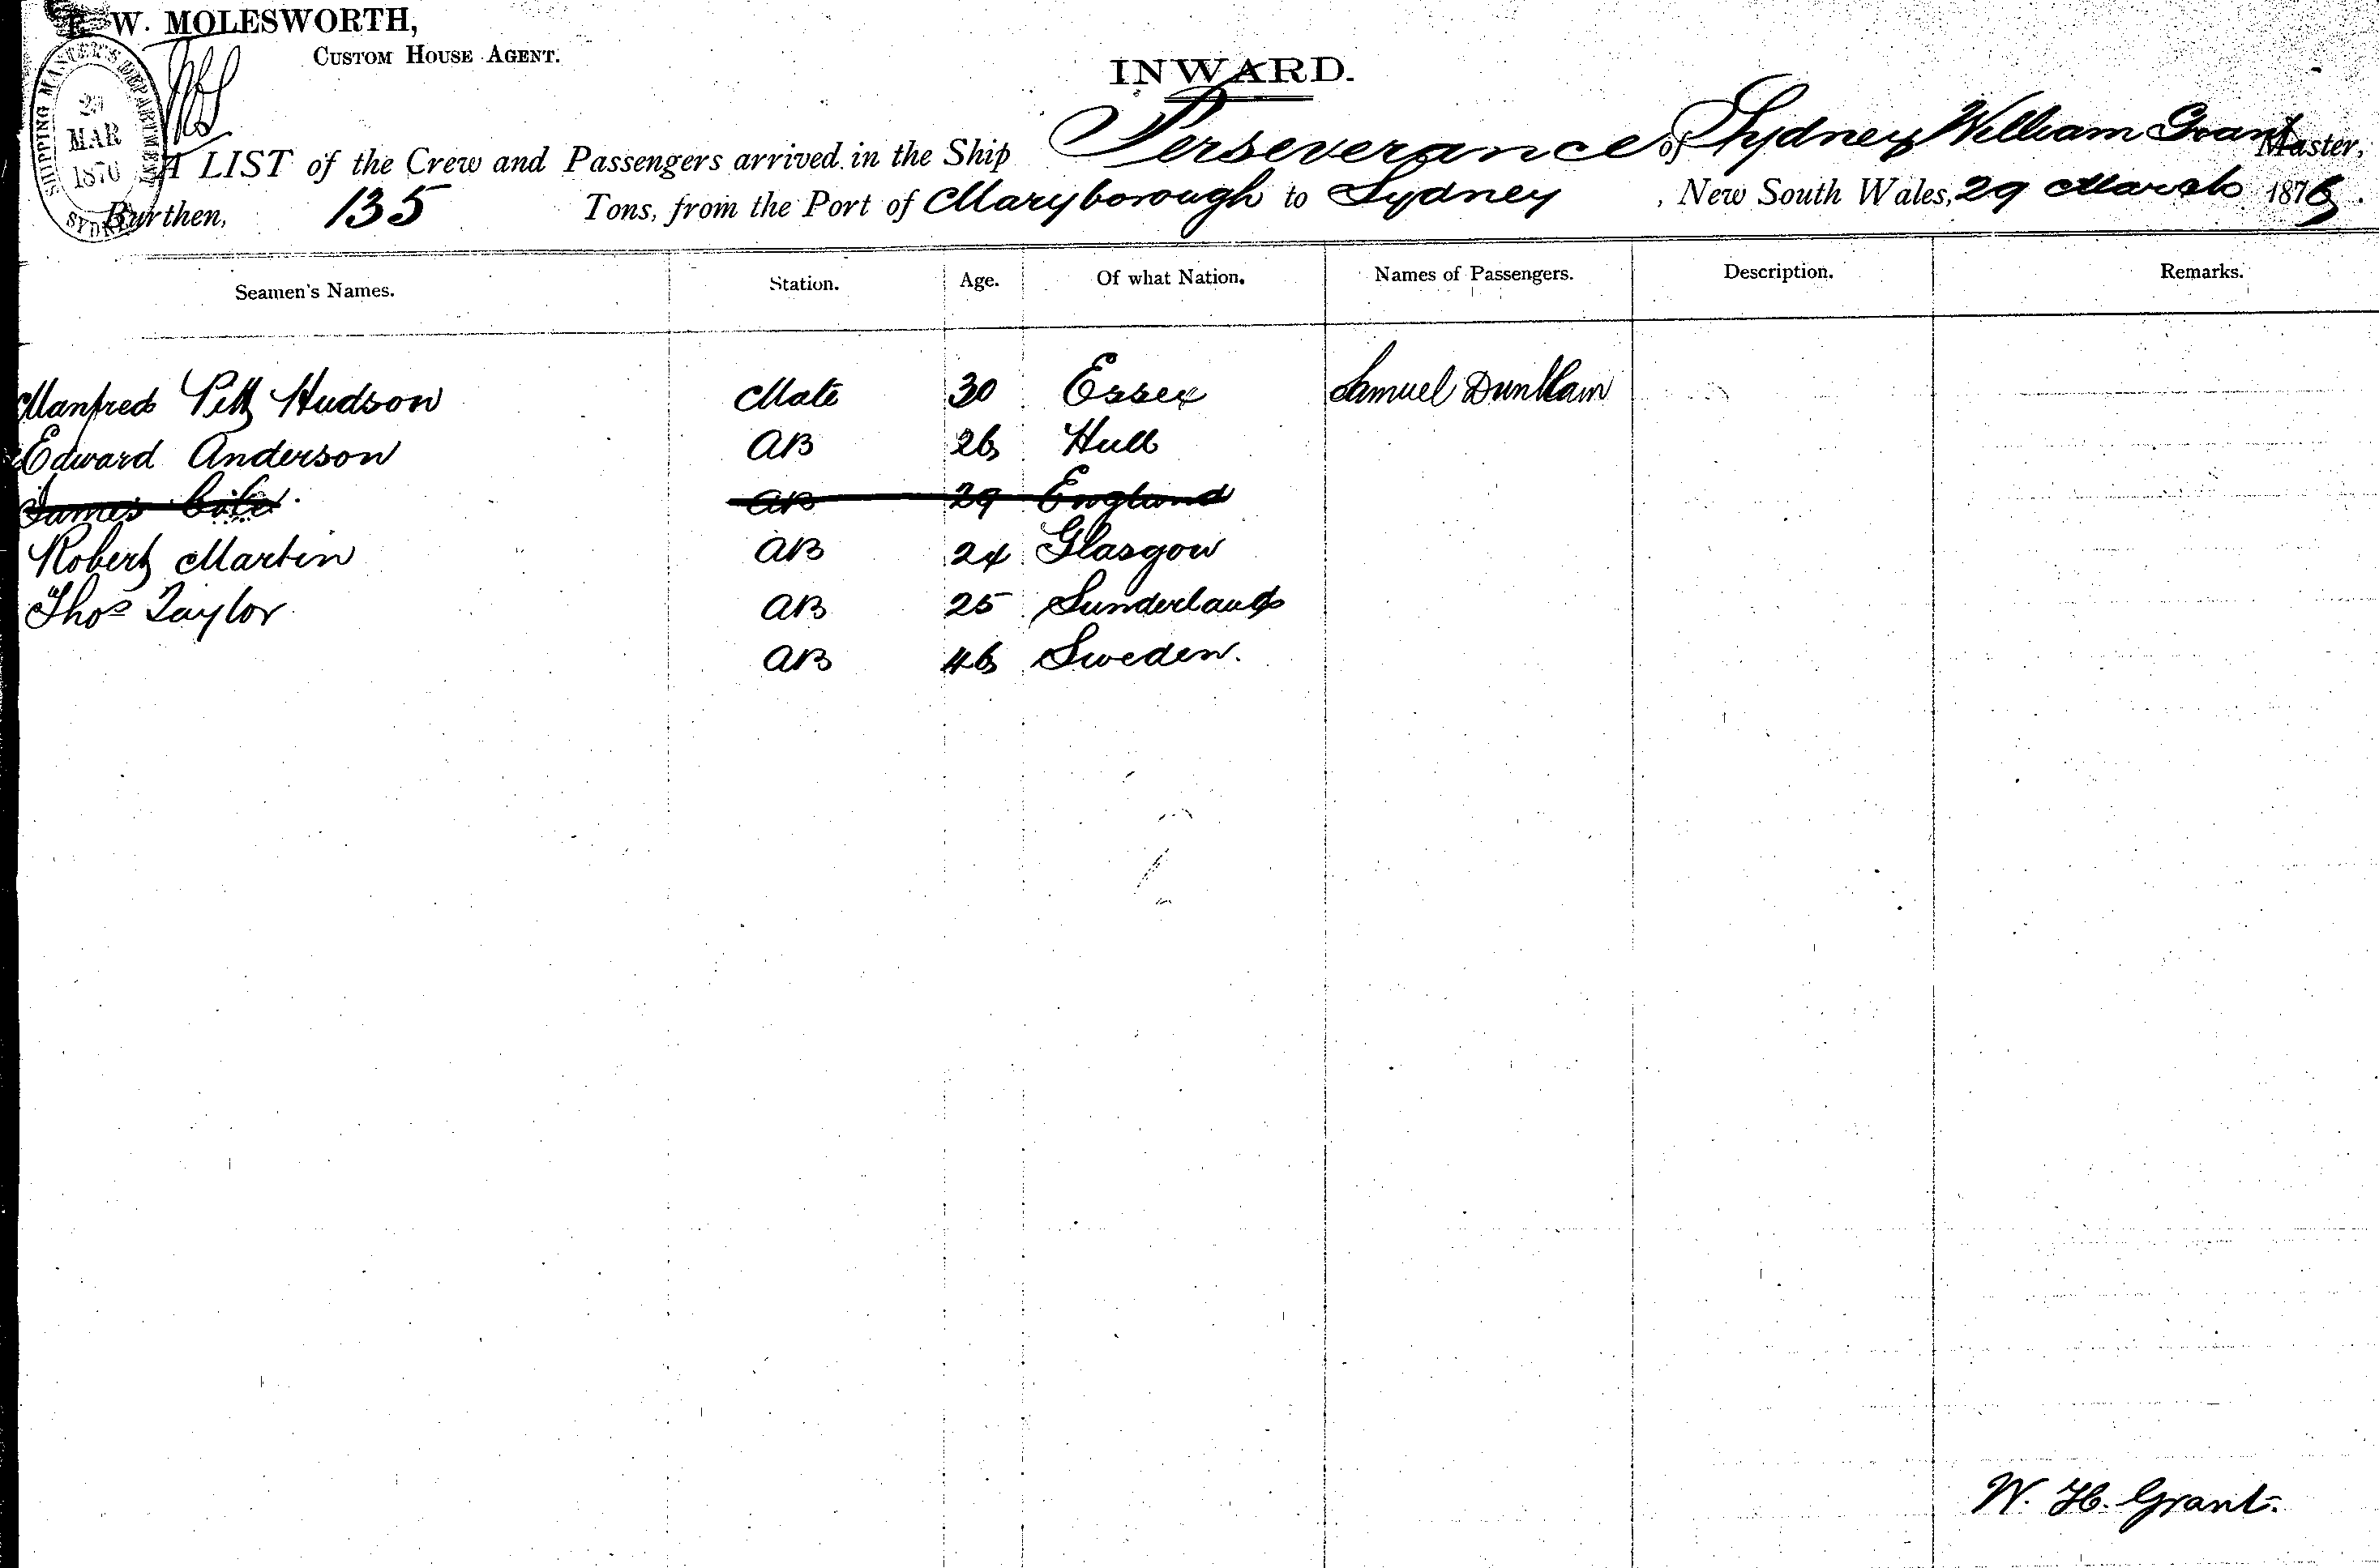 W. MOLESWORTH,
CUSTOM HOUSE AGENT.
SHIPPING MASTER'S DEPARTMENT
29
MAR
1876
SYDNEY
INWARD.
A LIST of the Crew and Passengers arrived in the Ship Perseverance of Sydney William Grant Master,
Burthen, 135 Tons, from the Port of Maryborough to Sydney, New South Wales, 29 March 1876.
Seamen's Names. Station. Age. Of what Nation. Names of Passengers. Description. Remarks.
Manfred Pitt Hudson Mate 30 Essex Samuel
Edward Anderson AB 26 Hull
James AB 29 England
Robert Martin AB 24 Glasgow
Thos Taylor AB 25 Sunderland
AB 46 Sweden.
W. H. Grant.